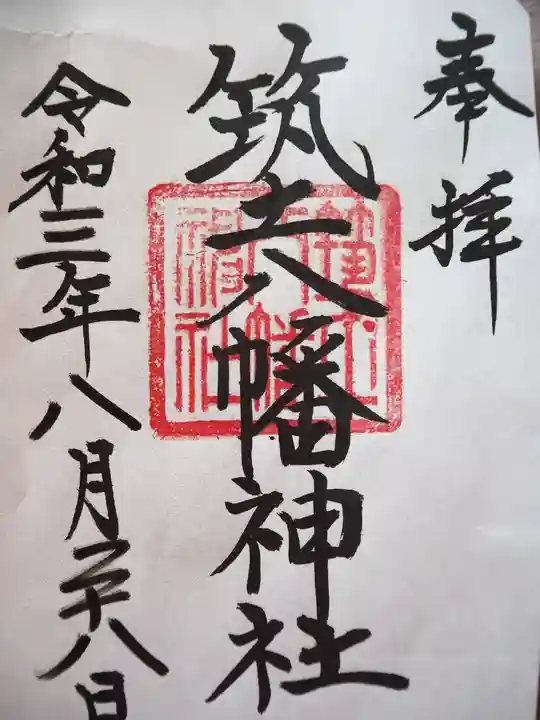 奉拝
筑土八幡神社
令和三年八月二十八日